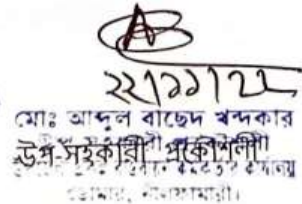 ২২/১১/২২
মোঃ আব্দুল বাছেদ খন্দকার
উপ-সহকারী প্রকৌশলী
ডোমার, নীলফামারী।